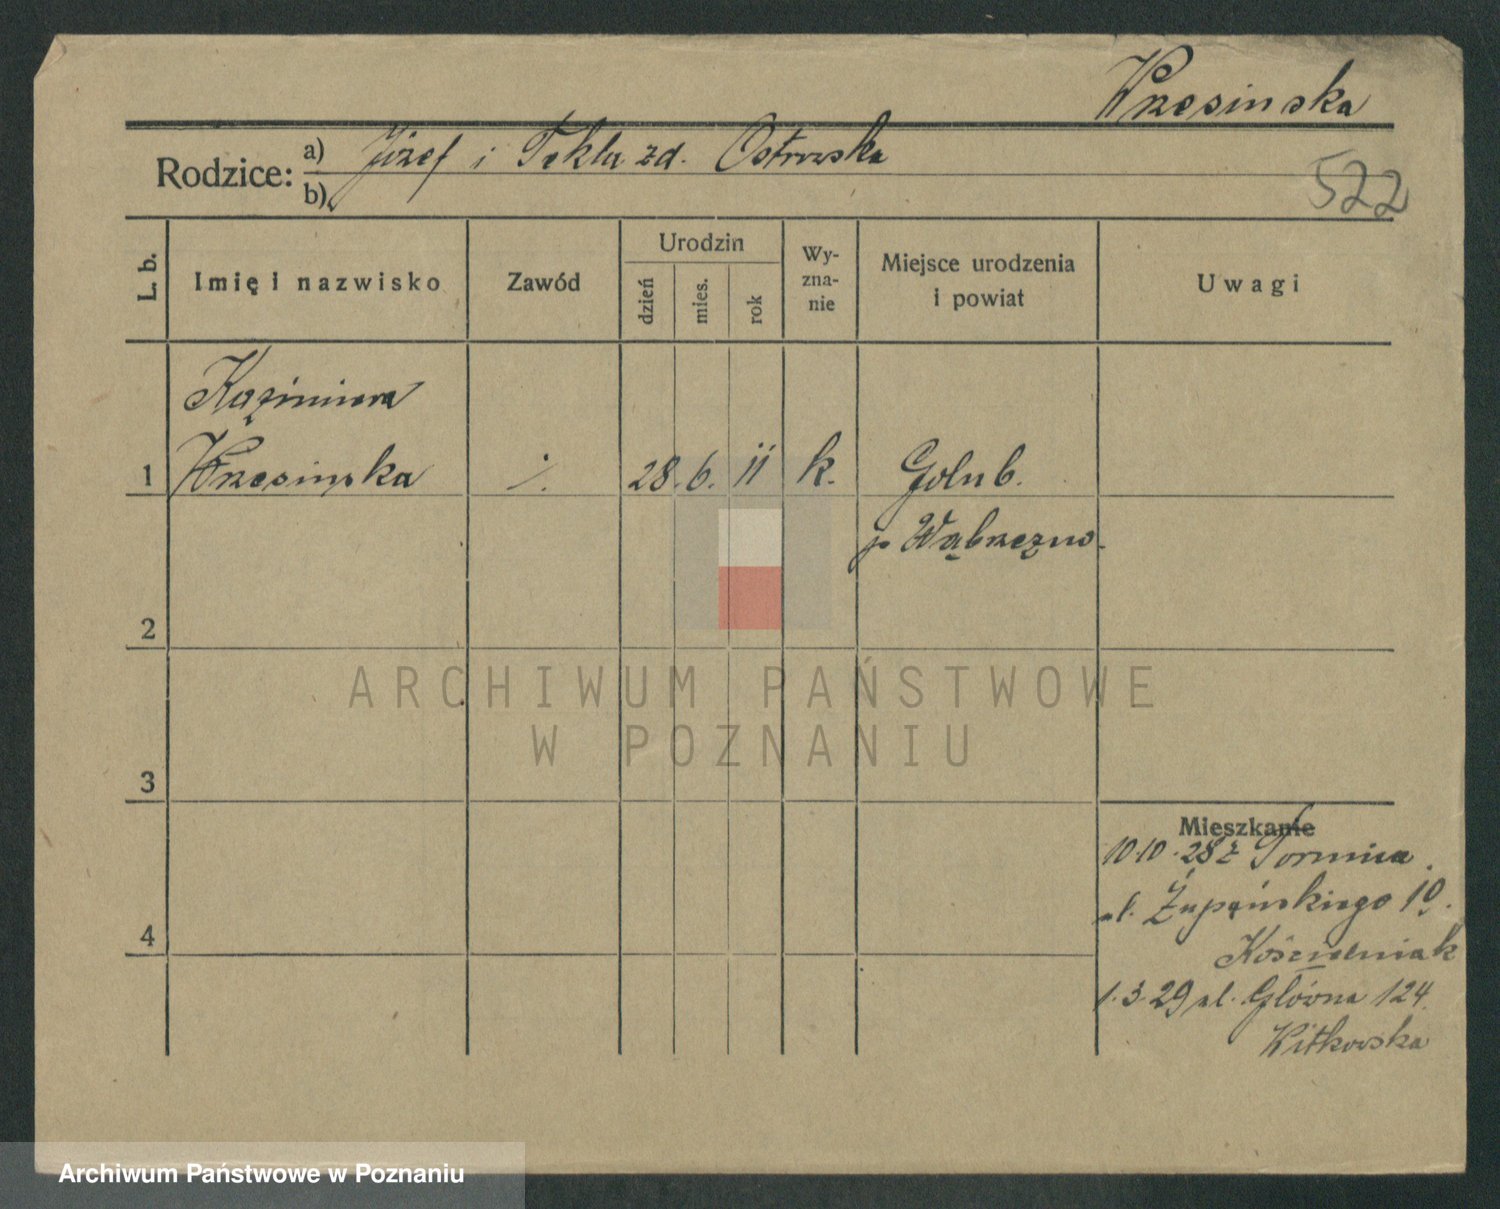 Wrzesinska
Rodzice:
a) Józef i Tekla zd. Ostrowska
b)
522
L. b.
Imię i nazwisko
Zawód
Urodzin
dzień
mies.
rok
Wy-
zna-
nie
Miejsce urodzenia
i powiat
Uwagi
Kazimiera
1 Wrzesinska ·/. 28. 6. 11 k. Golub.
p Wąbrzezno.
2
ARCHIWUM PAŃSTWOWE
W POZNANIU
3
Mieszkanie
10.10.28 z Torunia.
ul. Żupańskiego 10.
Kościelniak
4
1.3.29 ul. Główna 124.
Witkowska
Archiwum Państwowe w Poznaniu